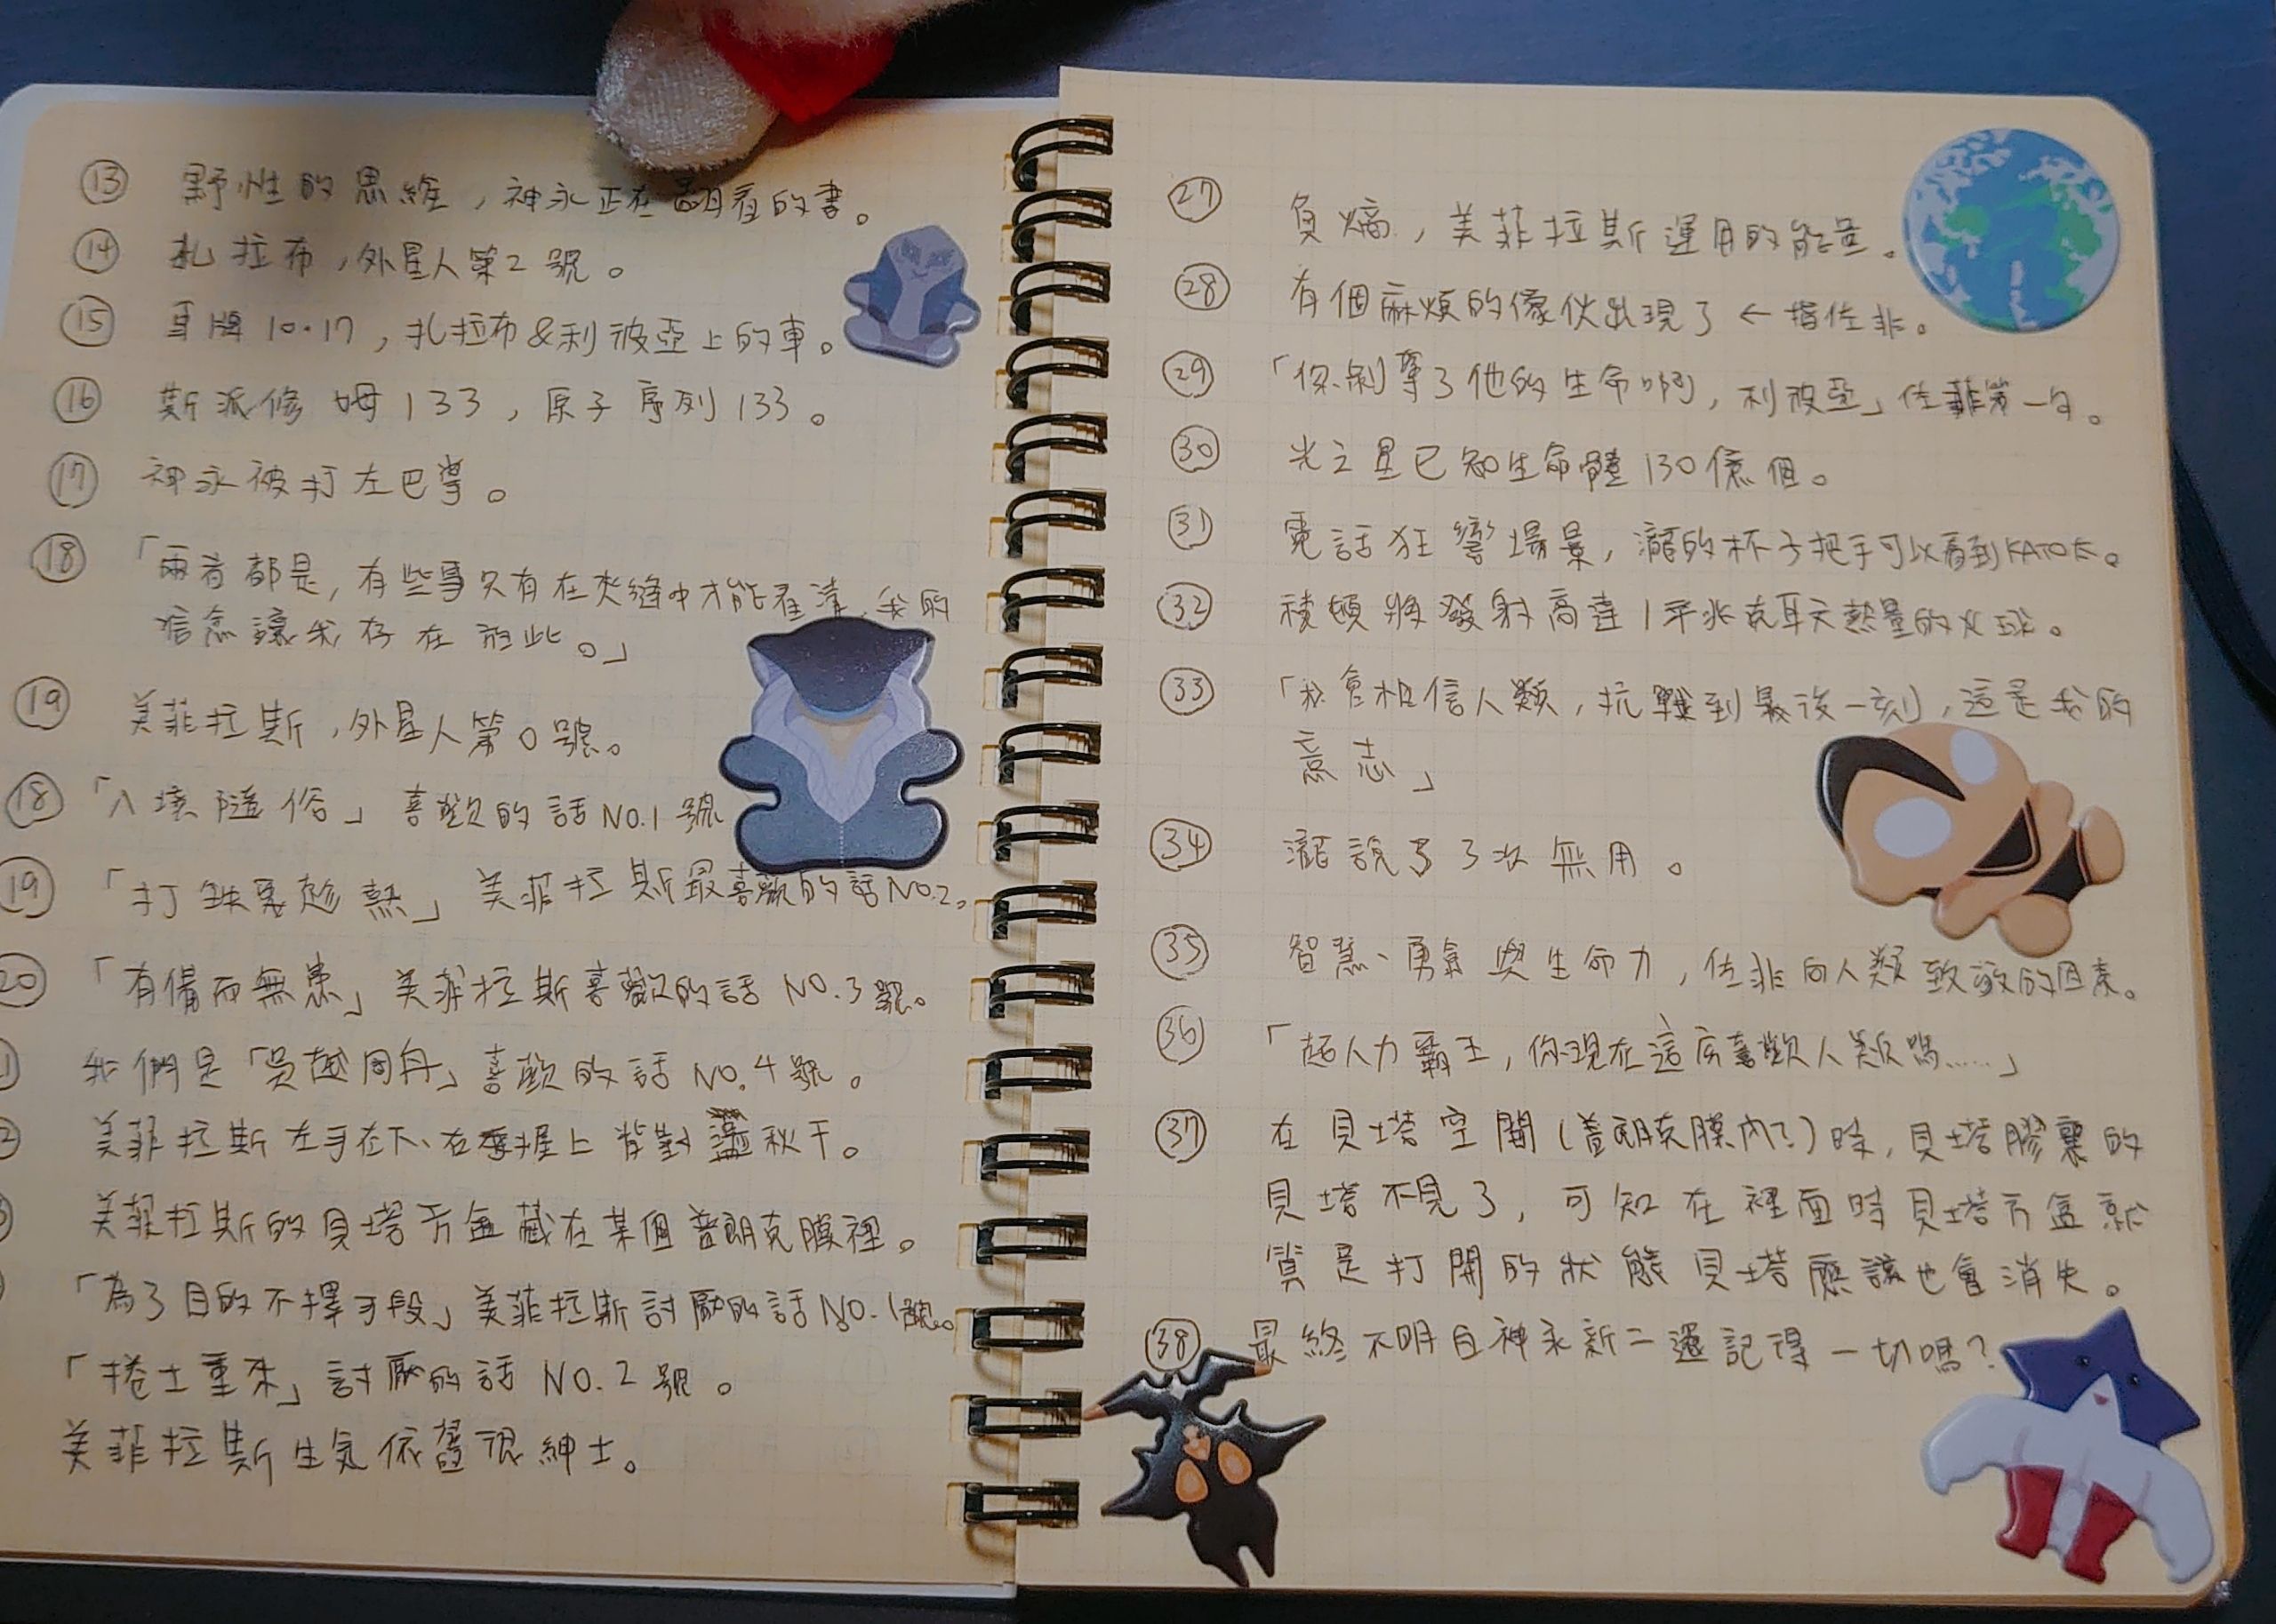 ⑬ 野性的思維，神永正在翻看的書。
⑭ 扎拉布，外星人第2號。
⑮ 車牌10·17，扎拉布&利波亞上的車。
⑯ 斯派修姆133，原子序列133。
⑰ 神永被打左巴掌。
⑱ 「兩者都是，有些事只有在夾縫中才能看清，我的
信念讓我存在於此。」
⑲ 美菲拉斯，外星人第0號。
⑱ 「入境隨俗」喜歡的話NO.1號
⑲ 「打鐵要趁熱」美菲拉斯最喜歡的話NO.2。
⑳ 「有備而無患」美菲拉斯喜歡的話NO.3號。
我們是「吳越同舟」喜歡的話NO.4號。
美菲拉斯左手在下、右手握上背對盪秋千。
美菲拉斯的貝塔方盒藏在某個普朗克膜裡。
「為了目的不擇手段」美菲拉斯討厭的話NO.1號。
「捲土重來」討厭的話NO.2號。
美菲拉斯生気依舊很紳士。
㉗ 負熵，美菲拉斯運用的能量。
㉘ 有個麻煩的傢伙出現了←指佐非。
㉙ 「你剝奪了他的生命啊，利波亞」佐菲第一句。
㉚ 光之星已知生命體130億個。
㉛ 電話狂響場景，瀧的杯子把手可以看到KATOK。
㉜ 稜頓將發射高達1平兆克耳文熱量的火球。
㉝ 「我會相信人類，抗戰到最後一刻，這是我的
意志」
㉞ 瀧說了3次無用。
㉟ 智慧、勇氣與生命力，佐非向人類致敬的因素。
㊱ 「超人力霸王，你現在這麼喜歡人類嗎……」
㊲ 在貝塔空間(普朗克膜內?)時，貝塔膠囊的
貝塔不見了，可知在裡面時貝塔方盒就
算是打開的狀態貝塔應該也會消失。
㊳ 最終不明白神永新二還記得一切嗎?